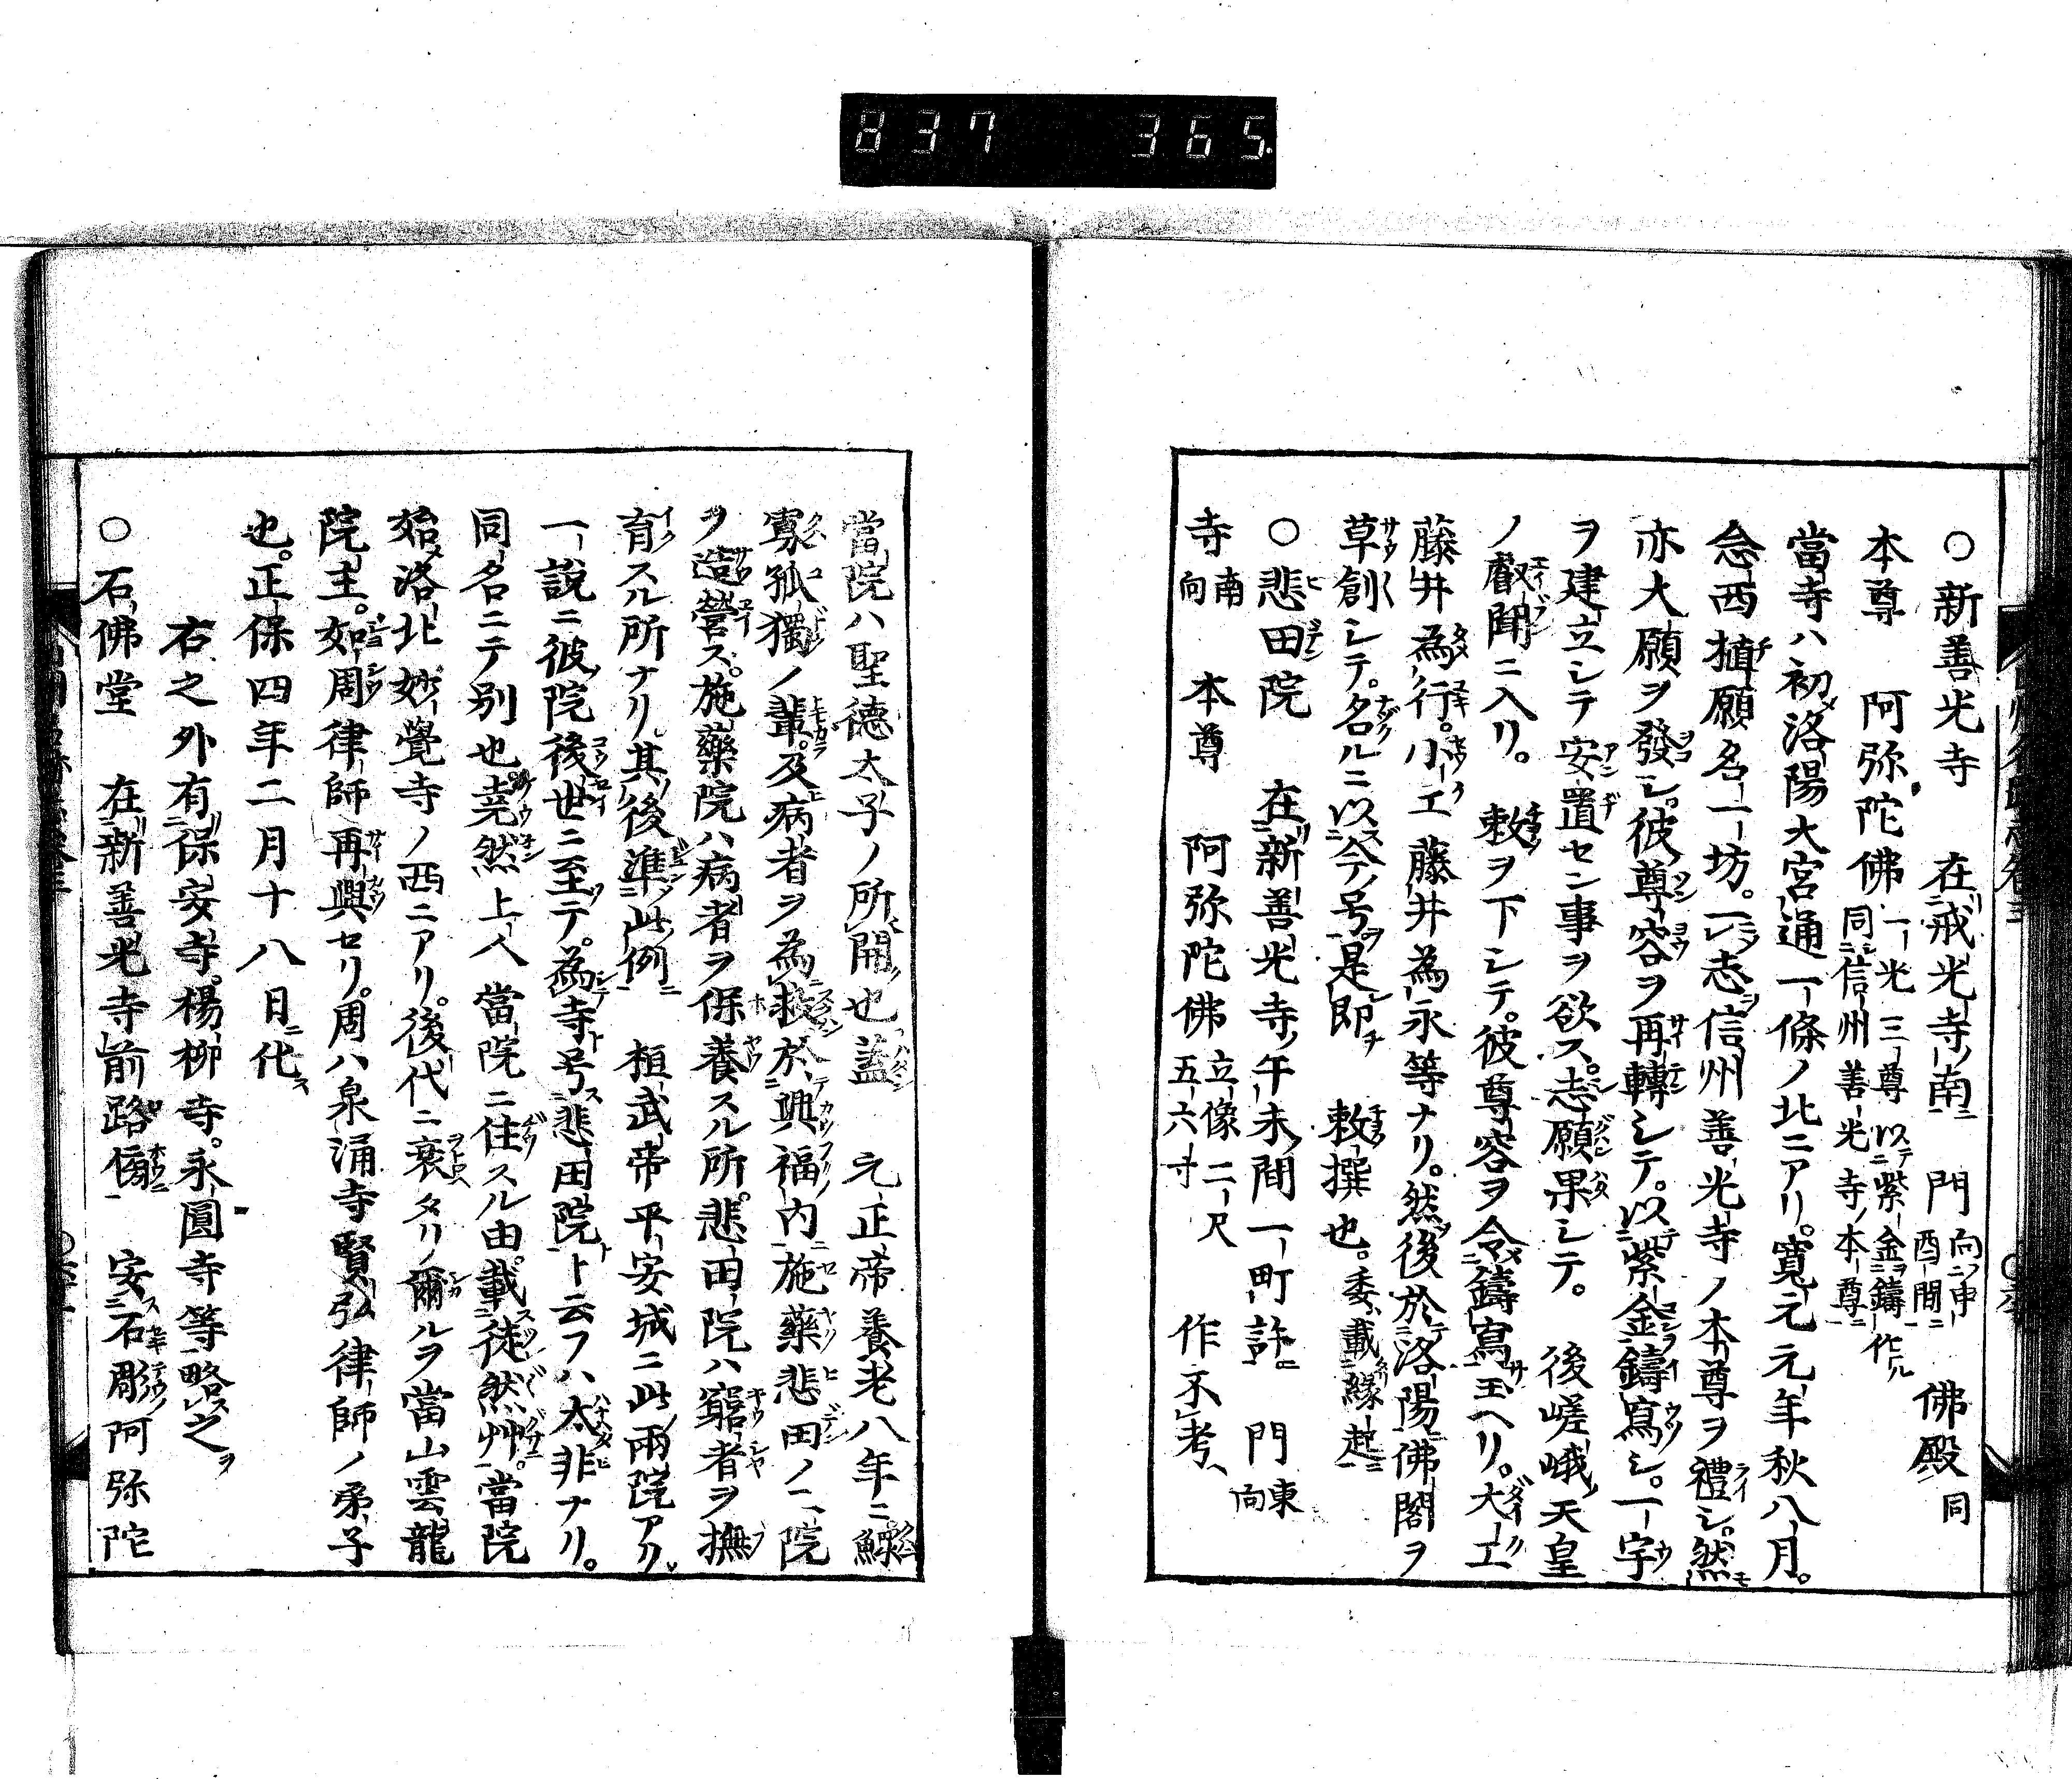 837 365
○新善光寺 在戒光寺南 門向申酉間 佛殿同
本尊 阿弥陀佛一光三尊以紫金鑄作同信州善光寺本尊
當寺ハ初洛陽大宮通一條ノ北ニアリ。寛元元年秋八月。
念西植願名一坊。一志信州善光寺ノ本尊ヲ禮シ。然
亦大願ヲ發シ。彼尊容ヲ再轉シテ。以紫金鑄寫シ。一宇
ヲ建立シテ安置セン事ヲ欲ス。志願果シテ。 後嵯峨天皇
ノ叡聞ニ入リ。 敕ヲ下シテ。彼尊容ヲ令鑄寫玉ヘリ。大工
藤井為行。小工藤井為永等ナリ。然後於洛陽佛閣ヲ
草創シテ。名ルニ以今号。是即 敕撰也。委載縁起
○悲田院 在新善光寺午未間一町許 門東向
寺南向 本尊 阿弥陀佛立像二尺五六寸 作不考
當院ハ聖德太子ノ所開也蓋 元正帝養老八年ニ鰥
寡孤獨ノ輩。及病者ヲ為救於興福内施藥悲田ノ二院
ヲ造營ス。施藥院ハ病者ヲ保養スル所。悲田院ハ窮者ヲ撫
育スル所ナリ。其後準此例 桓武帝平安城ニ此兩院アリ。
一說ニ彼院後世ニ至テ。為寺号悲田院ト云フハ太非ナリ。
同名ニテ別也尭然上人當院ニ住スル由。載徒然艸。當院
始洛北妙覺寺ノ西ニアリ。後代ニ衰タリノ爾ルヲ當山雲龍
院主。如周律師再興セリ。周ハ泉涌寺賢弘律師ノ弟子
也。正保四年二月十八日ニ代ス
右之外有保安寺。楊柳寺。永圓寺等略之
○石佛堂 在新善光寺前路傍 安石彫阿弥陀